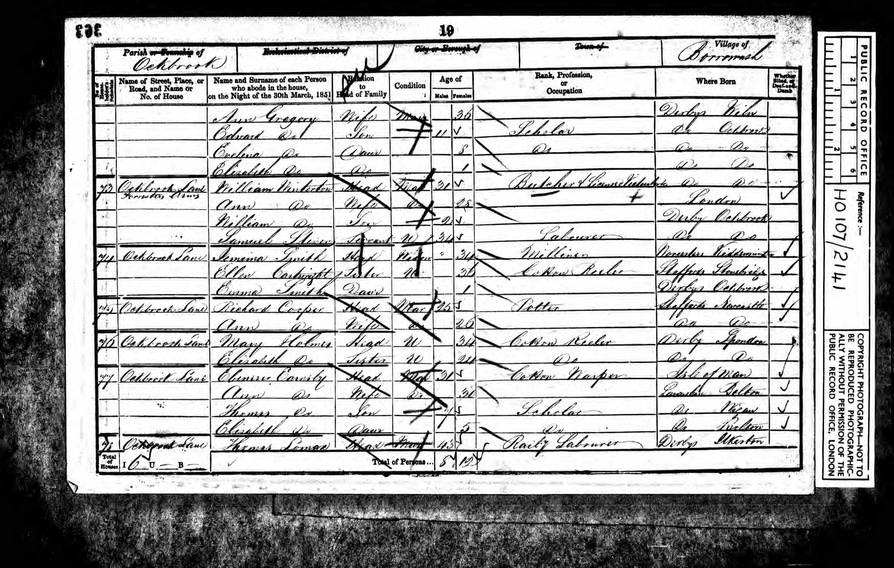 363
19
Parish or Township of
Ockbrook
Ecclesiastical District of
City or Borough of
Town of
Village of
Borrowash
Name of Street, Place, or Road, and Name or No. of House
Name and Surname of each Person who abode in the house, on the Night of the 30th March, 1851
Relation to Head of Family
Condition
Age of
Males Females
Rank, Profession, or Occupation
Where Born
Whether Blind, or Deaf-and-Dumb
Ann Gregory Wife Mar 36 Derbys
Edward Do Son 11 Scholar Do Ockbrook
Evelina Do Daur 8 Do Do Do
Elizabeth Do Do 1 Do Do
73 Ockbrook Lane William Head Mar 31 Butcher & Do Do
Ann Do Wife Do 28 London
William Do Son 2 Derby Ockbrook
Samuel Servant U 34 Labourer Do Do
74 Ockbrook Lane Jemima Smith Head 34 Milliner
Ellen Cartwright Sister U 36 Cotton Reeler
Emma Smith Daur 1 Derbys Ockbrook
75 Ockbrook Lane Richard Cooper Head Mar 25 Potter Staffords Newcastle
Ann Do Wife Do 26 Do Do
76 Ockbrook Lane Mary Holmes Head U 34 Cotton Reeler Derby Spondon
Elizabeth Do Sister U 24 Do Do Do
77 Ockbrook Lane Head Mar 31 Cotton Warper Isle of Man
Ann Do Wife Do 31 Bolton
Thomas Do Son 7 Scholar Do Wigan
Elizabeth Do Daur 5 Do Do Bolton
Ockbrook Lane Thomas Lomas Head 43 Labourer Derbys Ilkeston
Total of Houses I 6 U — B —
Total of Persons... 5 15
PUBLIC RECORD OFFICE
1 2 3 4 5 6
1 2
Reference :—
HO 107/2141
COPYRIGHT PHOTOGRAPH—NOT TO BE REPRODUCED PHOTOGRAPHICALLY WITHOUT PERMISSION OF THE PUBLIC RECORD OFFICE, LONDON